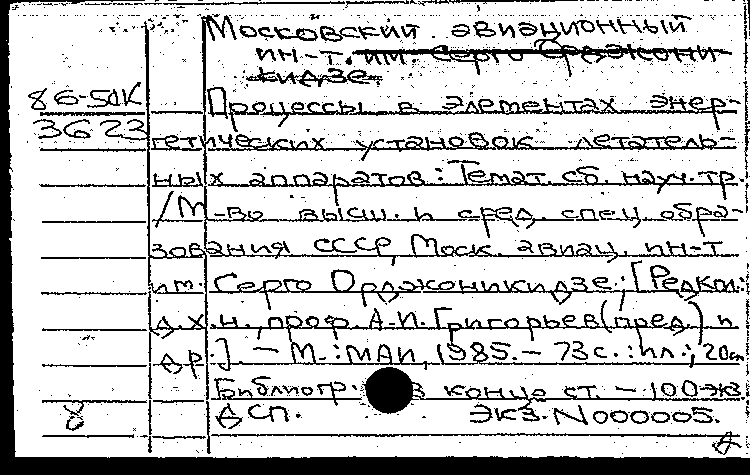 Московский авиационный
ин-т. им. Серго Орджони-
кидзе
86-5ДК Процессы в элементах энер-
3623 гетических установок летатель-
ных аппаратов: Темат. сб. науч. тр.
/М-во высш. и сред. спец. обра-
зования СССР, Моск. авиац. ин-т
им. Серго Орджоникидзе; [Редкол.:
д.х.н., проф. А.И. Григорьев (пред.) и
др.]. — М.: МАИ, 1985. — 73 с.: ил.; 20см
Библиогр. в конце ст. — 100 экз.
8 ДСП. Экз. N000005.